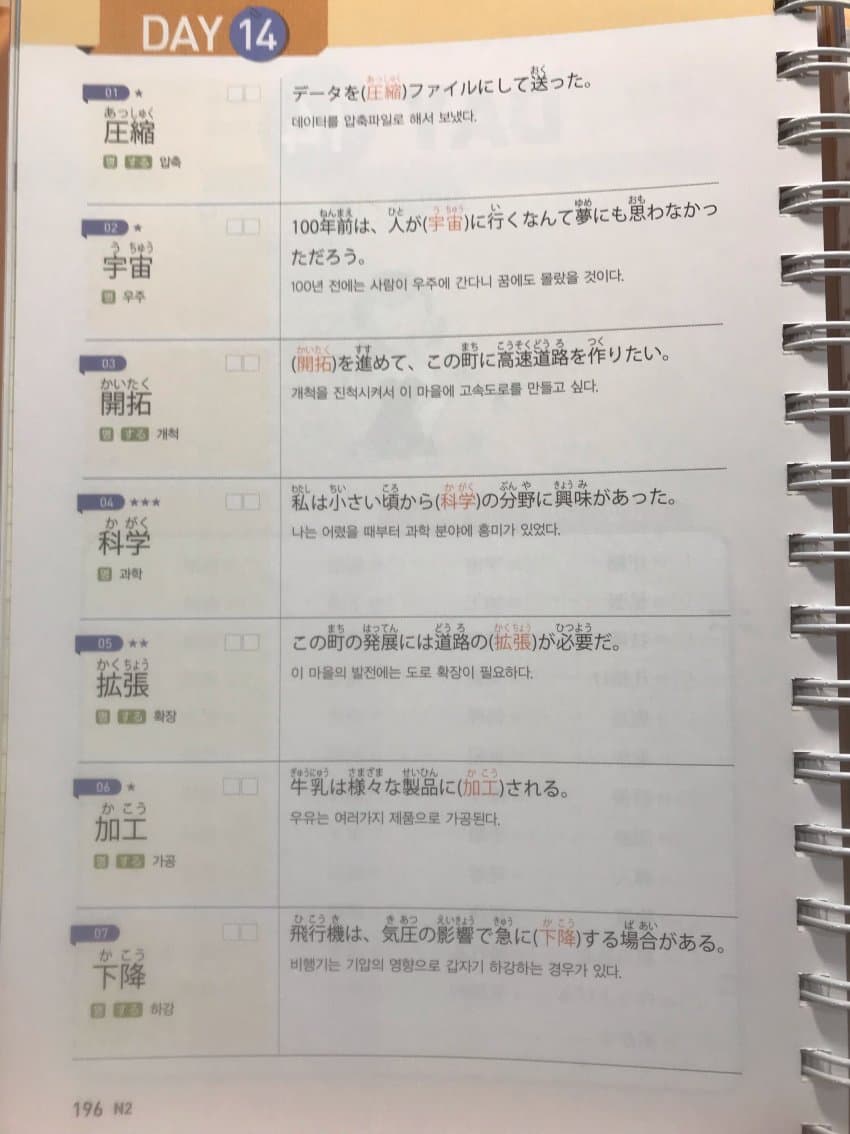 DAY 14
01 ★
あっしゅく
圧縮
명 する 압축
あっしゅく おく
データを(圧縮)ファイルにして送った。
데이터를 압축파일로 해서 보냈다.
02 ★
う ちゅう
宇宙
명 우주
ねんまえ ひと う ちゅう い ゆめ おも
100年前は、人が(宇宙)に行くなんて夢にも思わなかっ
ただろう。
100년 전에는 사람이 우주에 간다니 꿈에도 몰랐을 것이다.
03
かいたく
開拓
명 する 개척
かいたく すす まち こうそくどう ろ つく
(開拓)を進めて、この町に高速道路を作りたい。
개척을 진척시켜서 이 마을에 고속도로를 만들고 싶다.
04 ★★★
か がく
科学
명 과학
わたし ちい ころ か がく ぶん や きょう み
私は小さい頃から(科学)の分野に興味があった。
나는 어렸을 때부터 과학 분야에 흥미가 있었다.
05 ★★
かくちょう
拡張
명 する 확장
まち はってん どう ろ かくちょう ひつよう
この町の発展には道路の(拡張)が必要だ。
이 마을의 발전에는 도로 확장이 필요하다.
06 ★
か こう
加工
명 する 가공
ぎゅうにゅう さまざま せいひん か こう
牛乳は様々な製品に(加工)される。
우유는 여러가지 제품으로 가공된다.
07
か こう
下降
명 する 하강
ひ こう き き あつ えいきょう きゅう か こう ば あい
飛行機は、気圧の影響で急に(下降)する場合がある。
비행기는 기압의 영향으로 갑자기 하강하는 경우가 있다.
196 N2